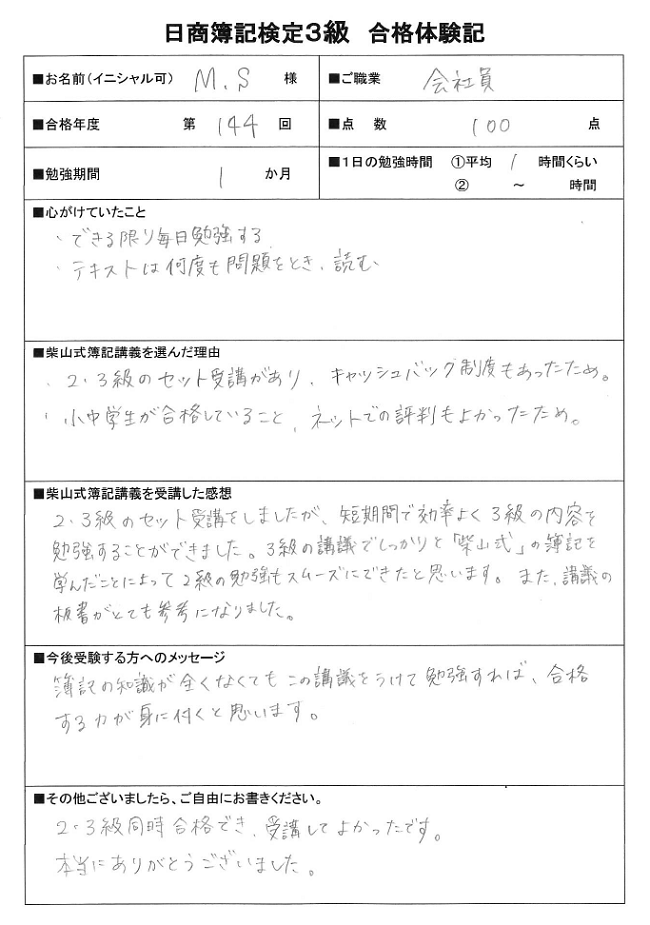 日商簿記検定3級 合格体験記
■お名前（イニシャル可） M.S 様
■ご職業 会社員
■合格年度 第 144 回
■点 数 100 点
■勉強期間 1 か月
■1日の勉強時間 ①平均 1 時間くらい
② ～ 時間
■心がけていたこと
・できる限り毎日勉強する
・テキストは何度も問題をとき、読む
■柴山式簿記講義を選んだ理由
・2・3級のセット受講があり、キャッシュバック制度もあったため。
・小中学生が合格していること、ネットでの評判もよかったため。
■柴山式簿記講義を受講した感想
2・3級のセット受講をしましたが、短期間で効率よく3級の内容を
勉強することができました。3級の講議でしっかりと「柴山式」の簿記を
学んだことによって2級の勉強もスムーズにできたと思います。また、講議の
板書がとても参考になりました。
■今後受験する方へのメッセージ
簿記の知識が全くなくてもこの講議をうけて勉強すれば、合格
する力が身に付くと思います。
■その他ございましたら、ご自由にお書きください。
2・3級同時合格でき、受講してよかったです。
本当にありがとうございました。